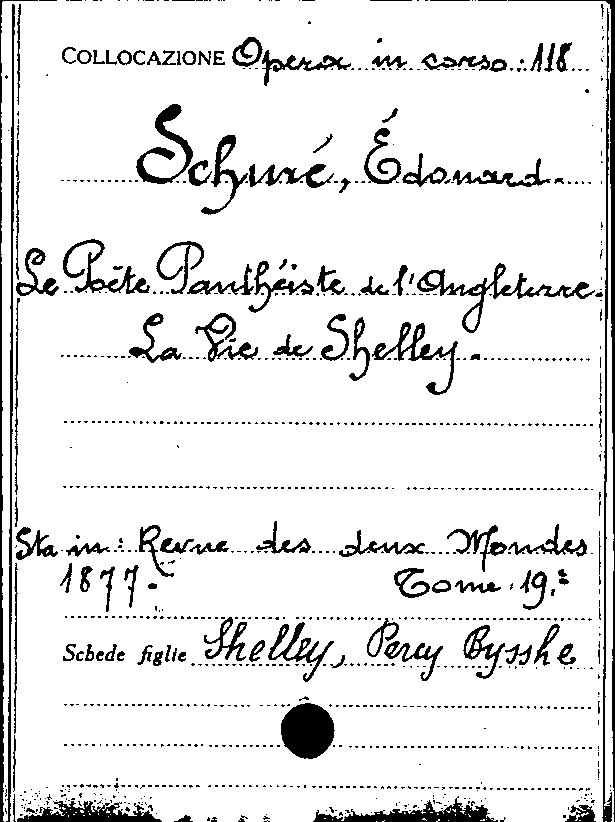 COLLOCAZIONE Opera in corso: 118
Schuré, Édouard.
Le Poëte Panthéiste de l'Angleterre.
La Vie de Shelley.
Sta in: Revue des deux Mondes
1877. Tome 19.º
Schede figlie Shelley, Percy Bysshe